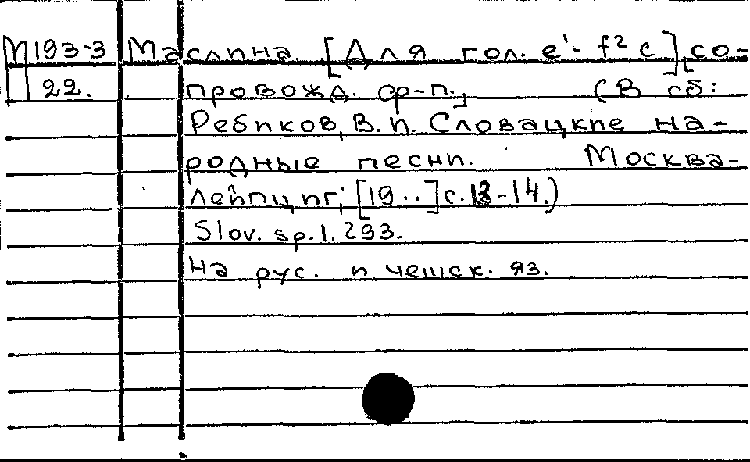 М193-3 Маслина [Для гол. e¹-f² с] со-
22. провожд. ф-п., (В сб:
Ребиков, В.И. Словацкие на-
родные песни. Москва-
Лейпциг; [19..] с.13-14.)
Slov. sp. I. 293.
На рус. и чешск. яз.